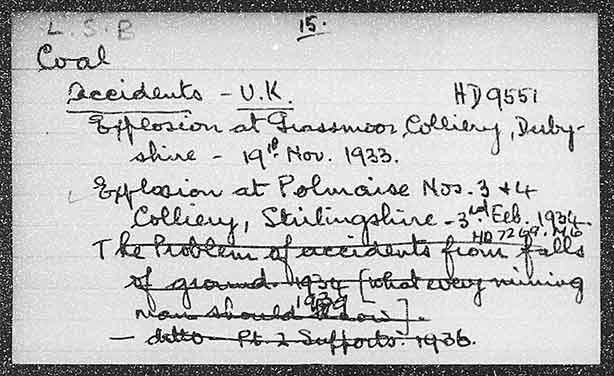 L.S.B 15.
Coal
accidents - U.K. HD9551
Explosion at Grassmoor Colliery, Derby-
shire - 19th Nov. 1933.
Explosion at Polmaise Nos. 3 + 4
Colliery, Stirlingshire - 3rd Feb. 1934.
HD7269.M6
The Problem of accidents from falls
of ground. 1934 [what every mining
1939
man should know].
- ditto - Pt. 2 Supports. 1936.